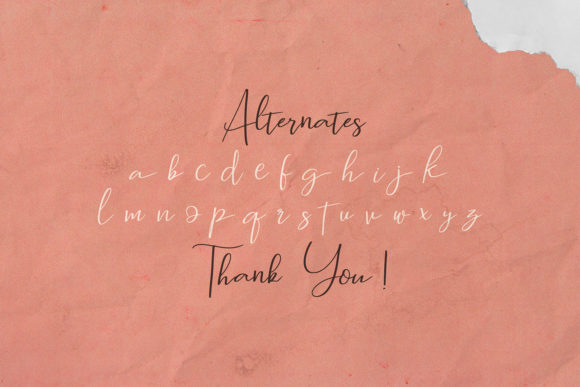 Alternates
a b c d e f g h i j k
l m n o p q r s t u v w x y z
Thank You!